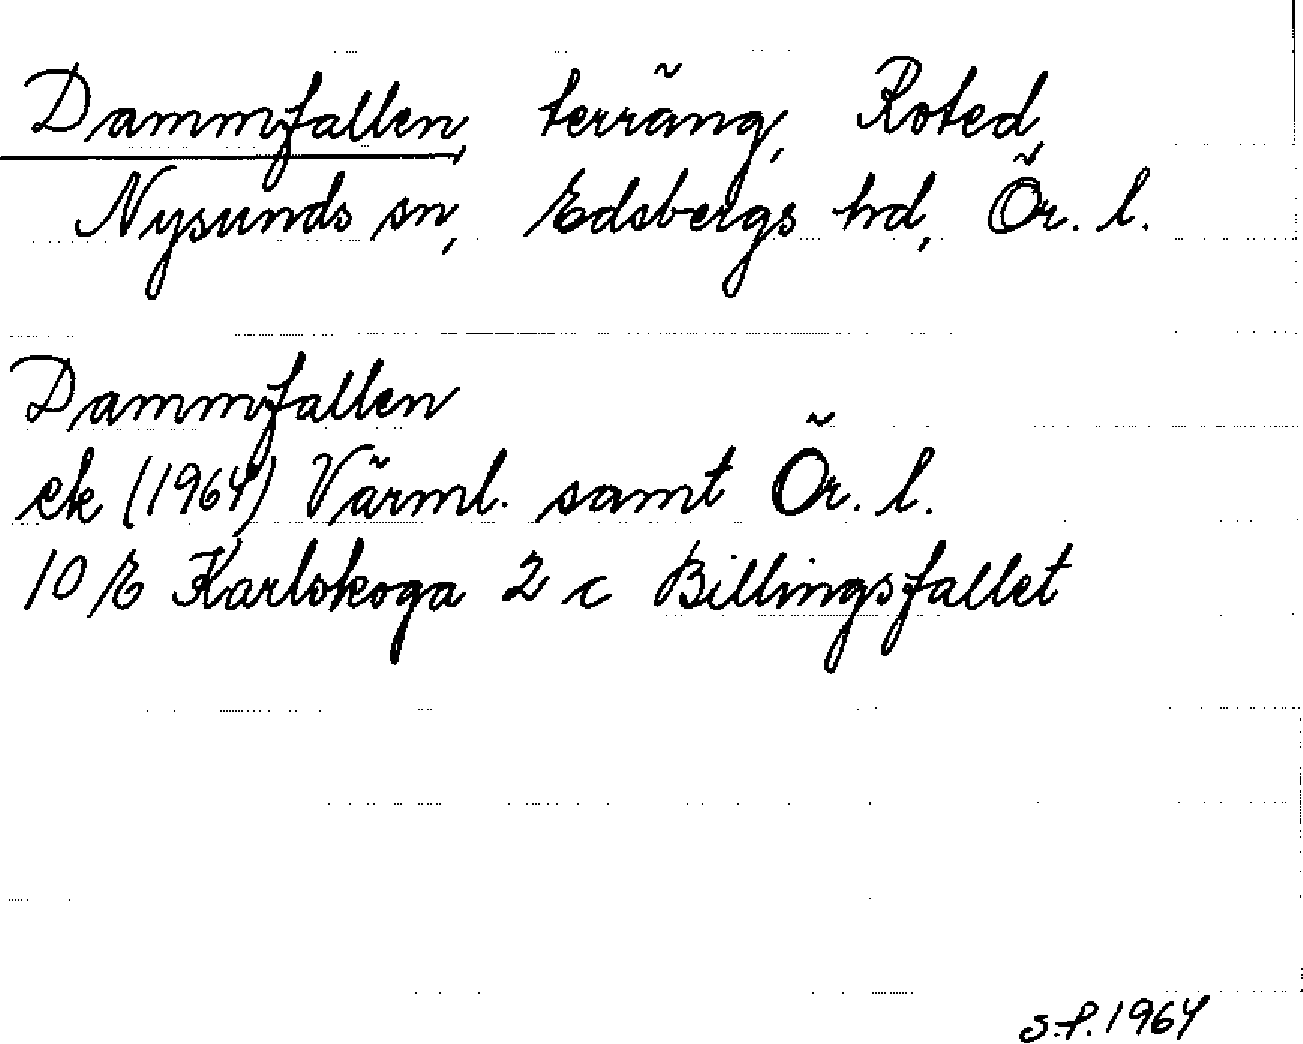 Dammfallen, terräng, Roted,
Nysunds sn, Edsbergs hd, Ör. l.
Dammfallen
ek (1964) Värml. samt Ör. l.
10 E Karlskoga 2 c Billingsfallet
S.P. 1964